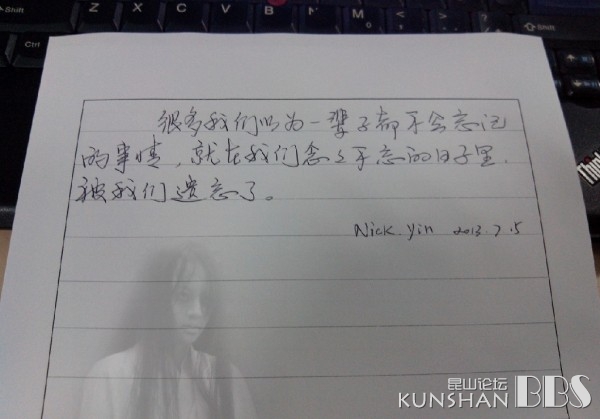 Shift Z X C V B N M < > ?
Ctrl
很多我们以为一辈子都不会忘记
的事情，就在我们念念不忘的日子里，
被我们遗忘了。
Nick Yin 2013.7.5
Think
昆山论坛
KUNSHAN BBS